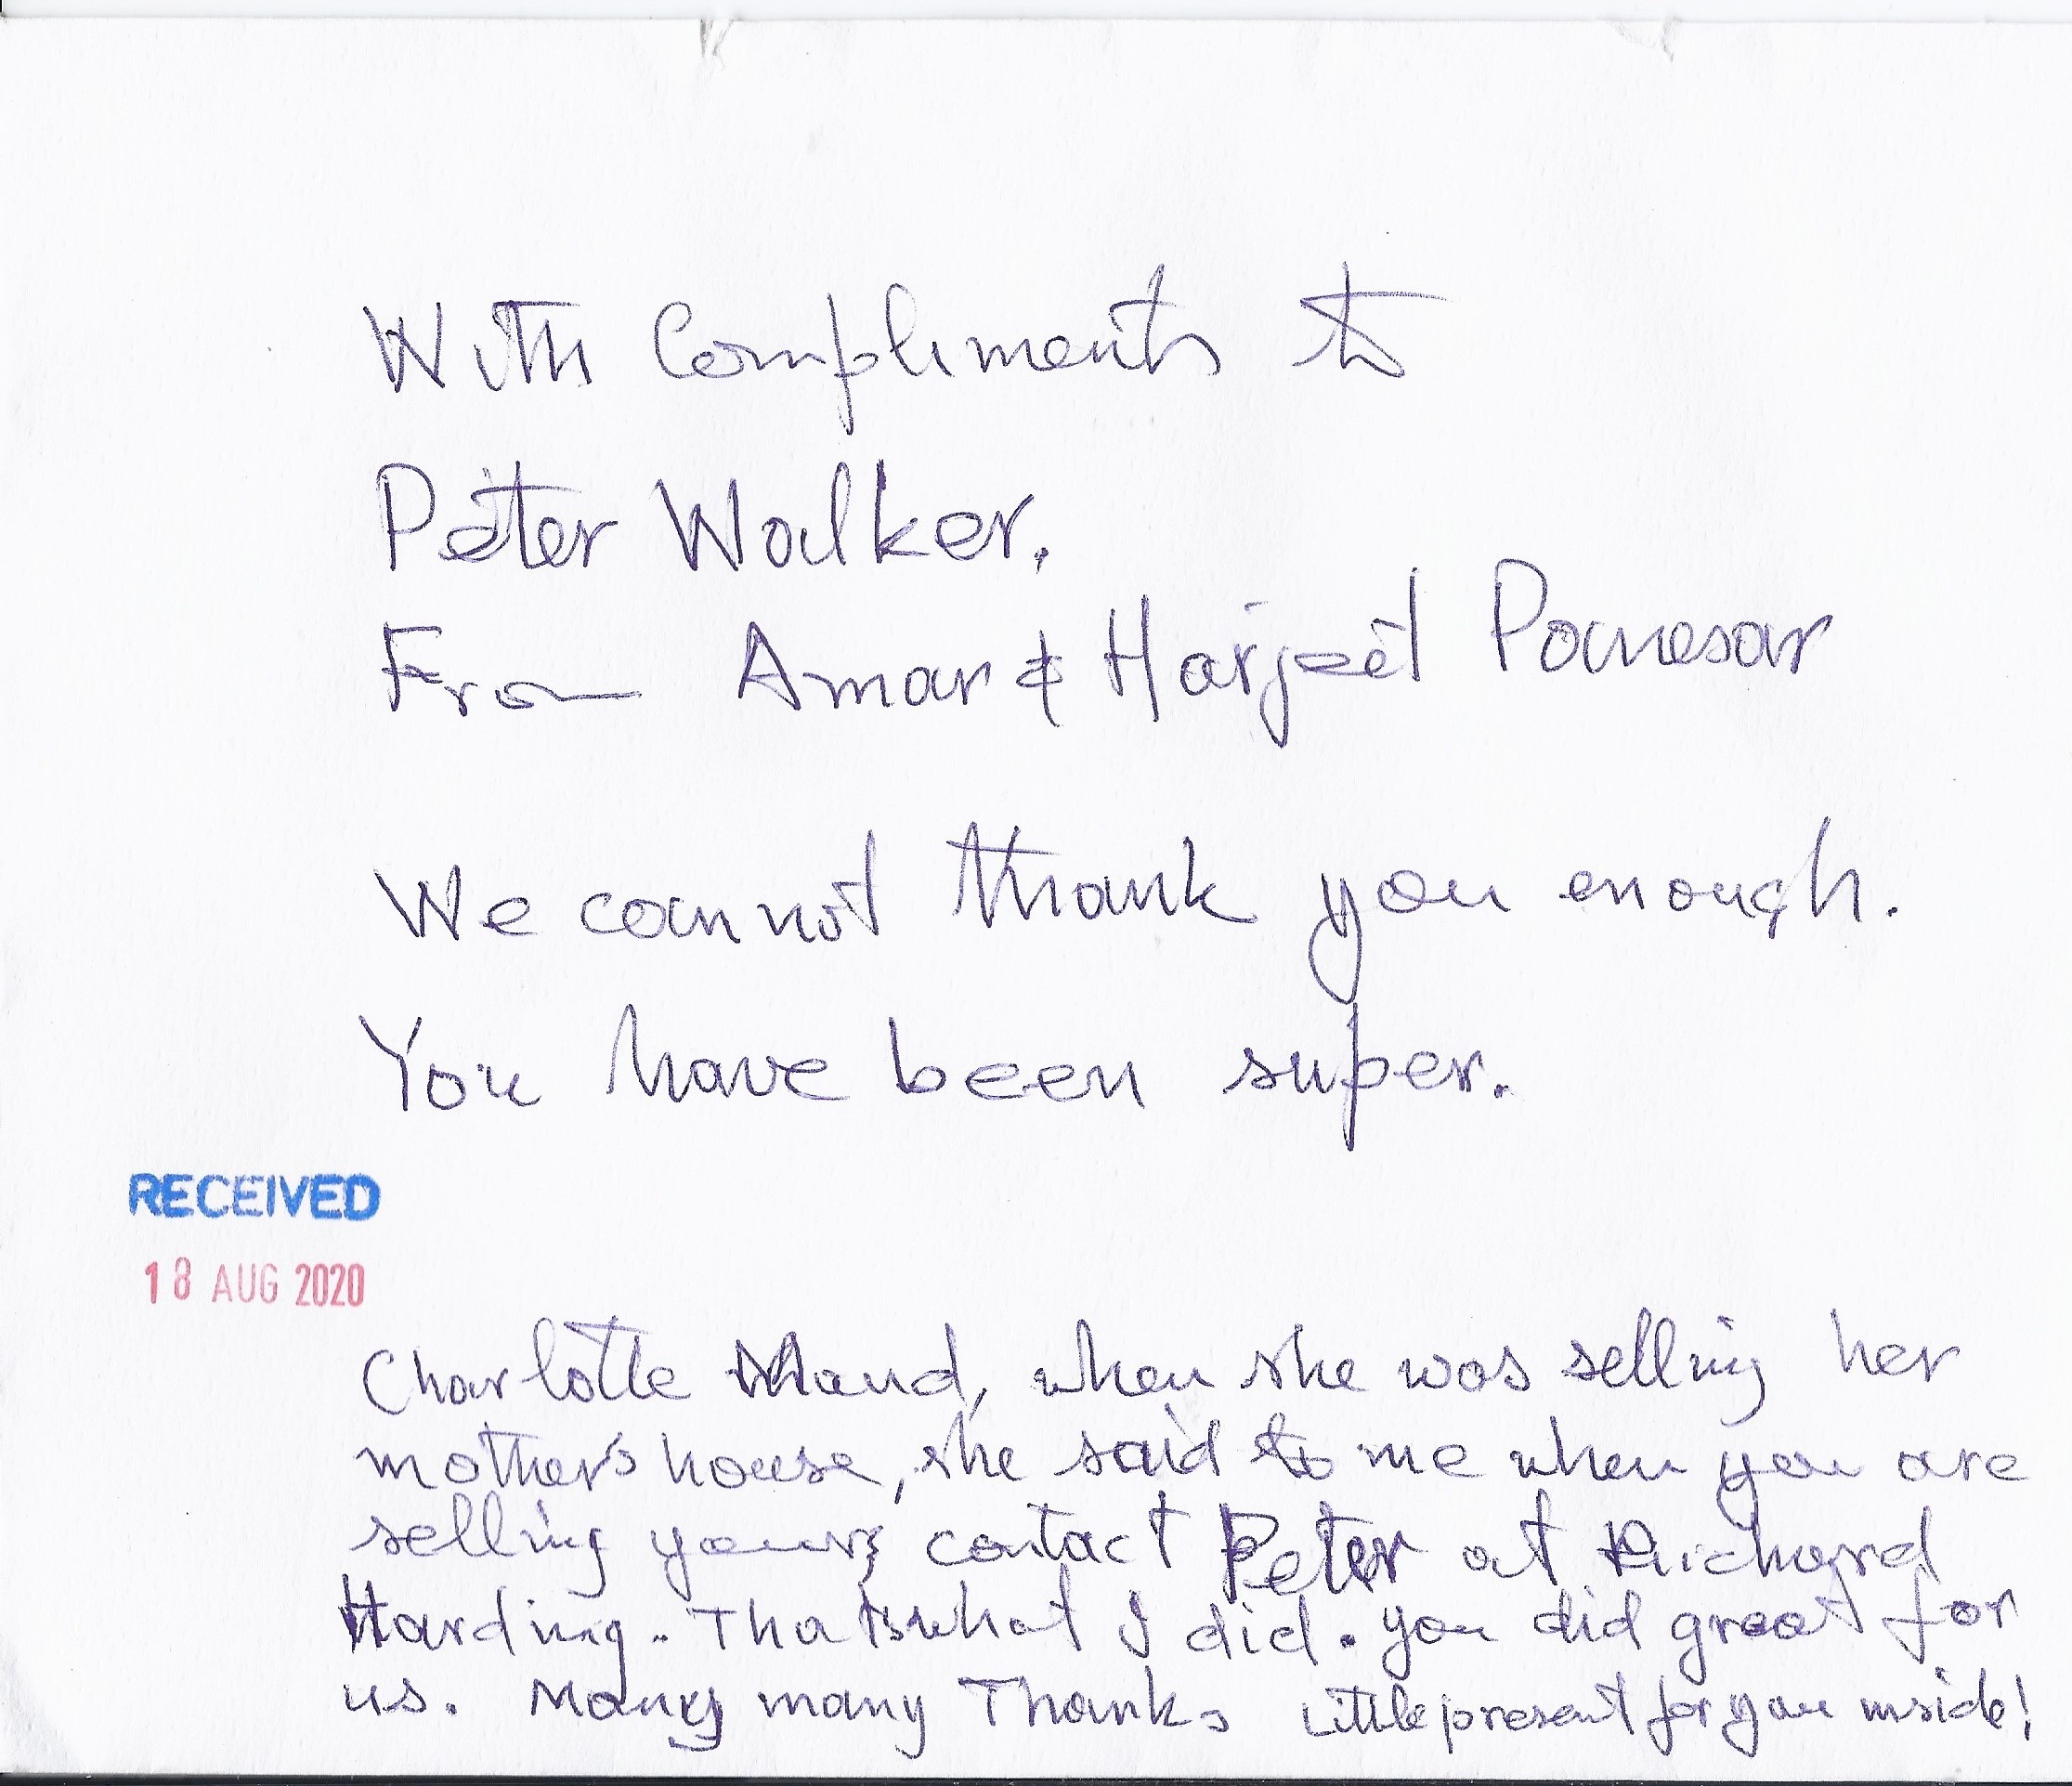 With Compliments to
Peter Walker.
From Amar & Harjeet Panesar
We cannot thank you enough.
You have been super.
RECEIVED
18 AUG 2020
Charlotte Maud, when she was selling her
mother's house, she said to me when you are
selling yours contact Peter at Richard
Harding. Thats what I did. You did great for
us. Many many Thanks Little present for you inside!